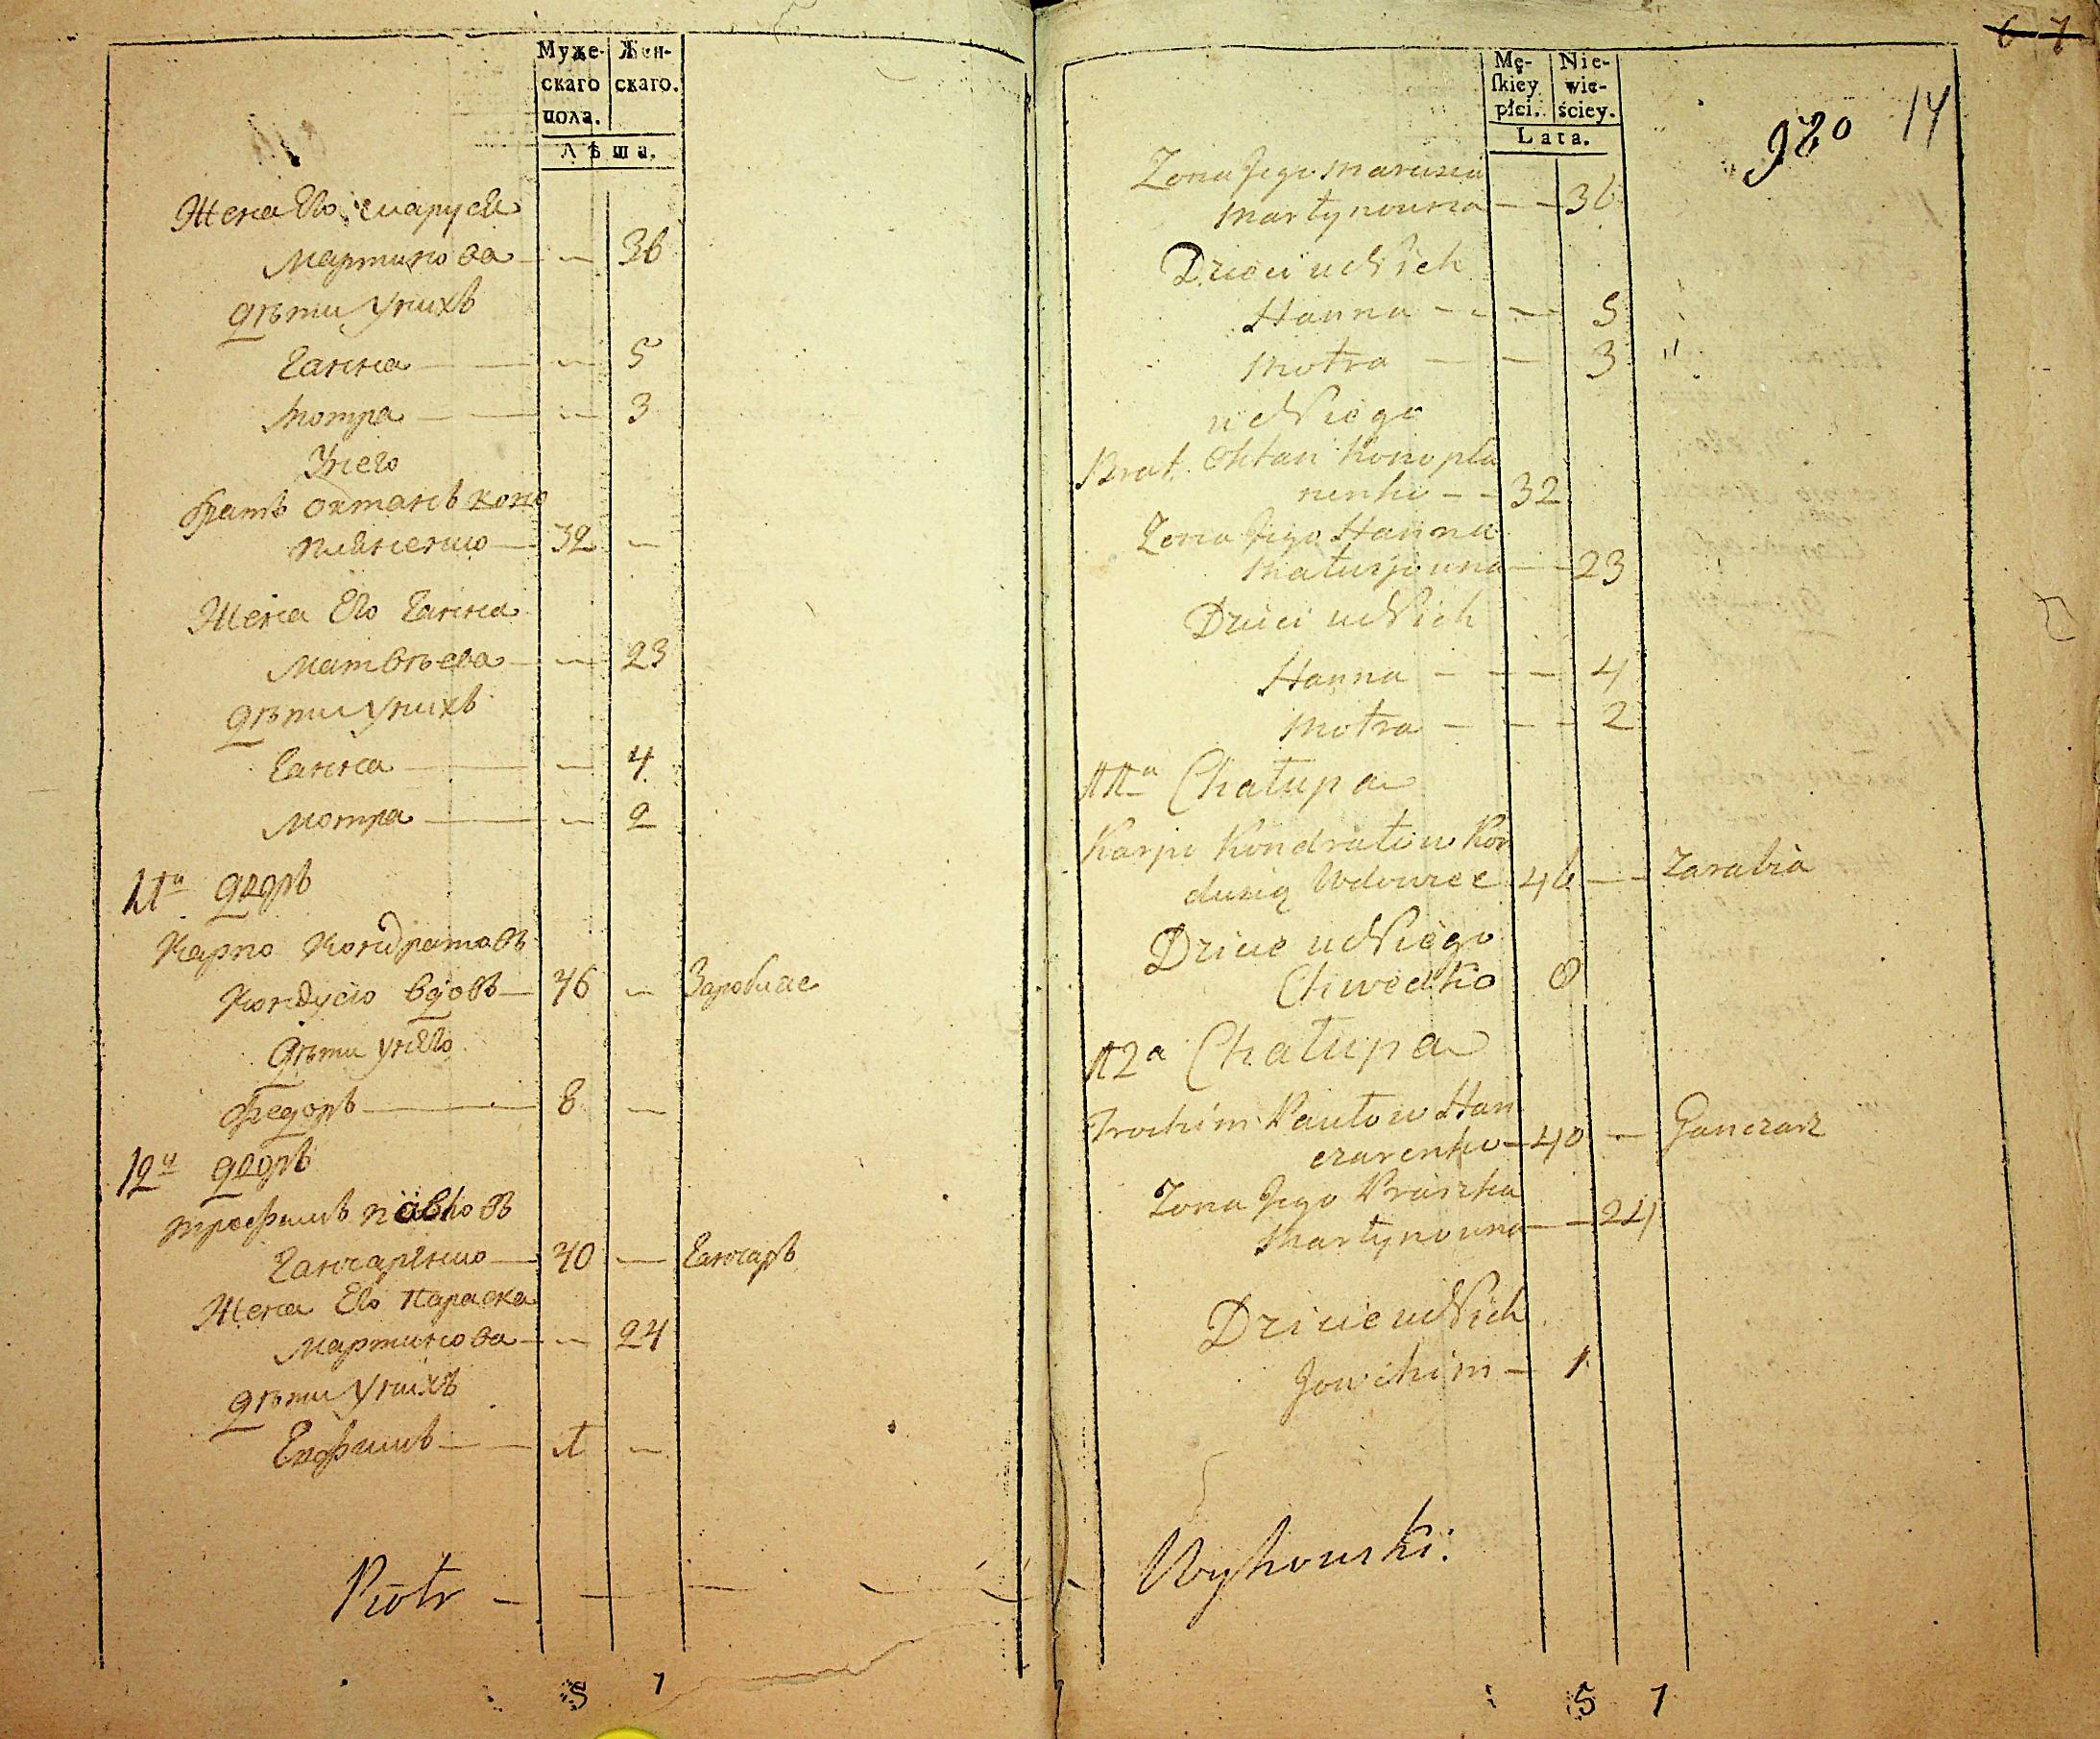 Муже-
скаго
пола.
Жен-
скаго.
Лѣта.
Жена Его Маруся
Мартинова — 36
дѣти Унихъ
Ганна — 5
Мотра — 3
Унего
братъ охтанъ коно
пляненко — 32 —
Жена Его Ганна
Матвѣева — 23
дѣти Унихъ
Ганна — 4
Мотра — 2
11й дворъ
Карпо Кондратовъ
Кондусю вдовъ — 46 —
дѣти Унего
Федоръ — 8 —
12й дворъ
Трофимъ Павловъ
Ганчаренко — 40 — Ганчаръ
Жена Его Параска
Мартинова — 24
дѣти Унихъ
Ефимъ — 1 —
Piotr —
5 7
Mę-
skiey
płci.
Nie-
wie-
ściey.
Lata.
6 7
14
920
Zona Jego Marusia
Martynowna — 36
Dzieci u Nich
Hanna — 5
Motra — 3
u Niego
Brat Ohtan Konopla
nenko — 32
Zona Jego Hanna
Matwijowna — 23
Dzieci u Nich
Hanna — 4
Motra — 2
11a Chałupa
Karpo Kondratow Kon
dusią Wdowiec 46 — Zarabia
Dziecie u Niego
Chwedko 8
12a Chałupa
Trochim Pawłow Han
czarenko — 40 — Ganczarz
Zona Jego Praszka
Martynowna — 24
Dziecie u Nich
Jowchim — 1
Wyhowski.
5 7